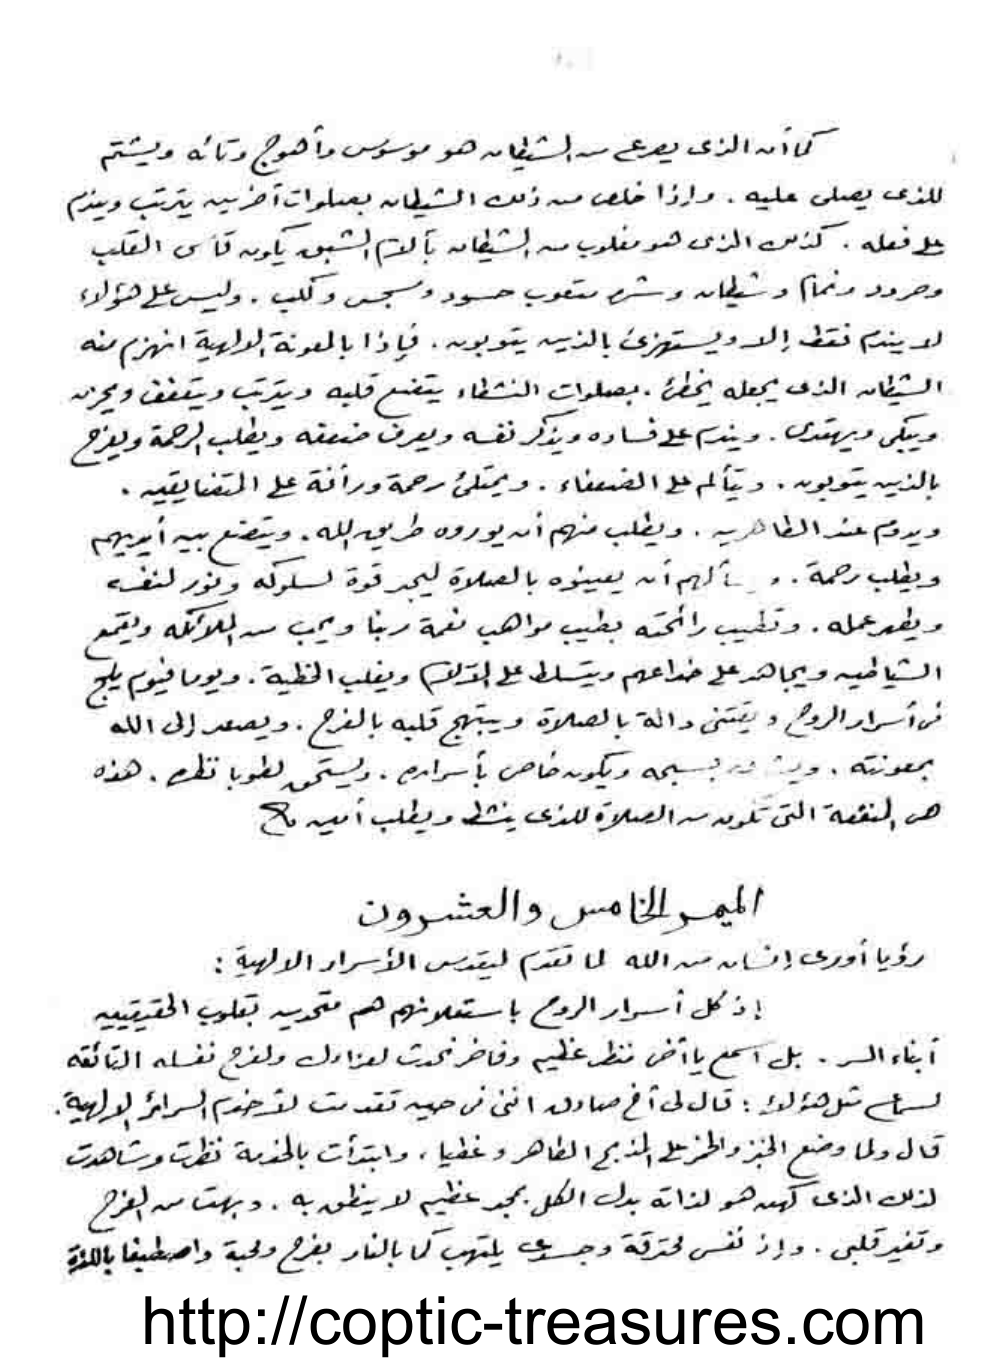 كما أن الذى يصرع من الشيطان هو موسوس وأهوج وتائه ويشتم
للذى يصلى عليه . وإذا خلص من ذلك الشيطان بصلوات آخرين يترتب ويندم
على فعله . كذلك الذى هو مغلوب من الشيطان بآلام الشبق يكون قاسى القلب
وحرود ونمام وشيطان وشره متعوب حسود ومسجس وكلب . وليس على هؤلاء
لا يندم فقط إلا ويستهزئ بالذين يتوبون . فإذا بالمعونة الإلهية انهزم منه
الشيطان الذى يجعله يخطئ . بصلوات النشطاء يتضع قلبه ويترتب ويتعفف ويحزن
ويبكى ويهتدى . ويندم على فساده ويذكر نفسه ويعرف ضعفه ويطلب الرحمة ويفرح
بالذين يتوبون . ويتألم على الضعفاء . ويمتلئ رحمة ورأفة على المتضايقين .
ويدوم عند الطاهرين . ويطلب منهم أن يوروه طريق الله . ويتضع بين أيديهم
ويطلب رحمة . ويسألهم أن يعينوه بالصلاة ليجد قوة لسلوكه ونور لنفسه
ويطهر عمله . وتطيب رائحته بطيب مواهب نعمة ربنا ويحب من الملائكه ويقمع
الشياطين ويجاهد على خداعهم ويتسلط على الآلام ويغلب الخطية . ويوما فيوم يلج
فى أسرار الروح ويقتنى دالة بالصلاة ويبتهج قلبه بالفرح . ويصعد إلى الله
بمعونته . بسبحه ويكون خاص بأسراره . ويستحق لطوبا نظره . هذه
هى المنفعة التى تكون من الصلاة للذى ينشط ويطلب أمين
الميمر الخامس والعشرون
رؤيا أورى إنسان من الله لما تقدم ليقدس الأسرار الالهية :
إذ كل أسرار الروح باستعلانهم هم متحدين بقلوب الحقيقيين
أبناء السر . بل اسمع يا أخى منظر عظيم وفاخر لعزاءك ولفرح نفسك التائقه
لسماع مثل هؤلاء : قال لى أخ صادق اننى فى حين تقدمت لأخدم السرائر الإلهية .
قال ولما وضع الخبز والخمر على المذبح الطاهر وغطيا ، وابتدأت بالخدمة نظرت وشاهدت
لذلك الذى كهن هو لذاته بدل الكل بمجد عظيم لا ينطق به . وبهت من الفرح
وتغير قلبى . وإذ نفسى محترقة وجسدى يلتهب كما بالنار بفرح ومحبة واصطبغا باللذة
http://coptic-treasures.com